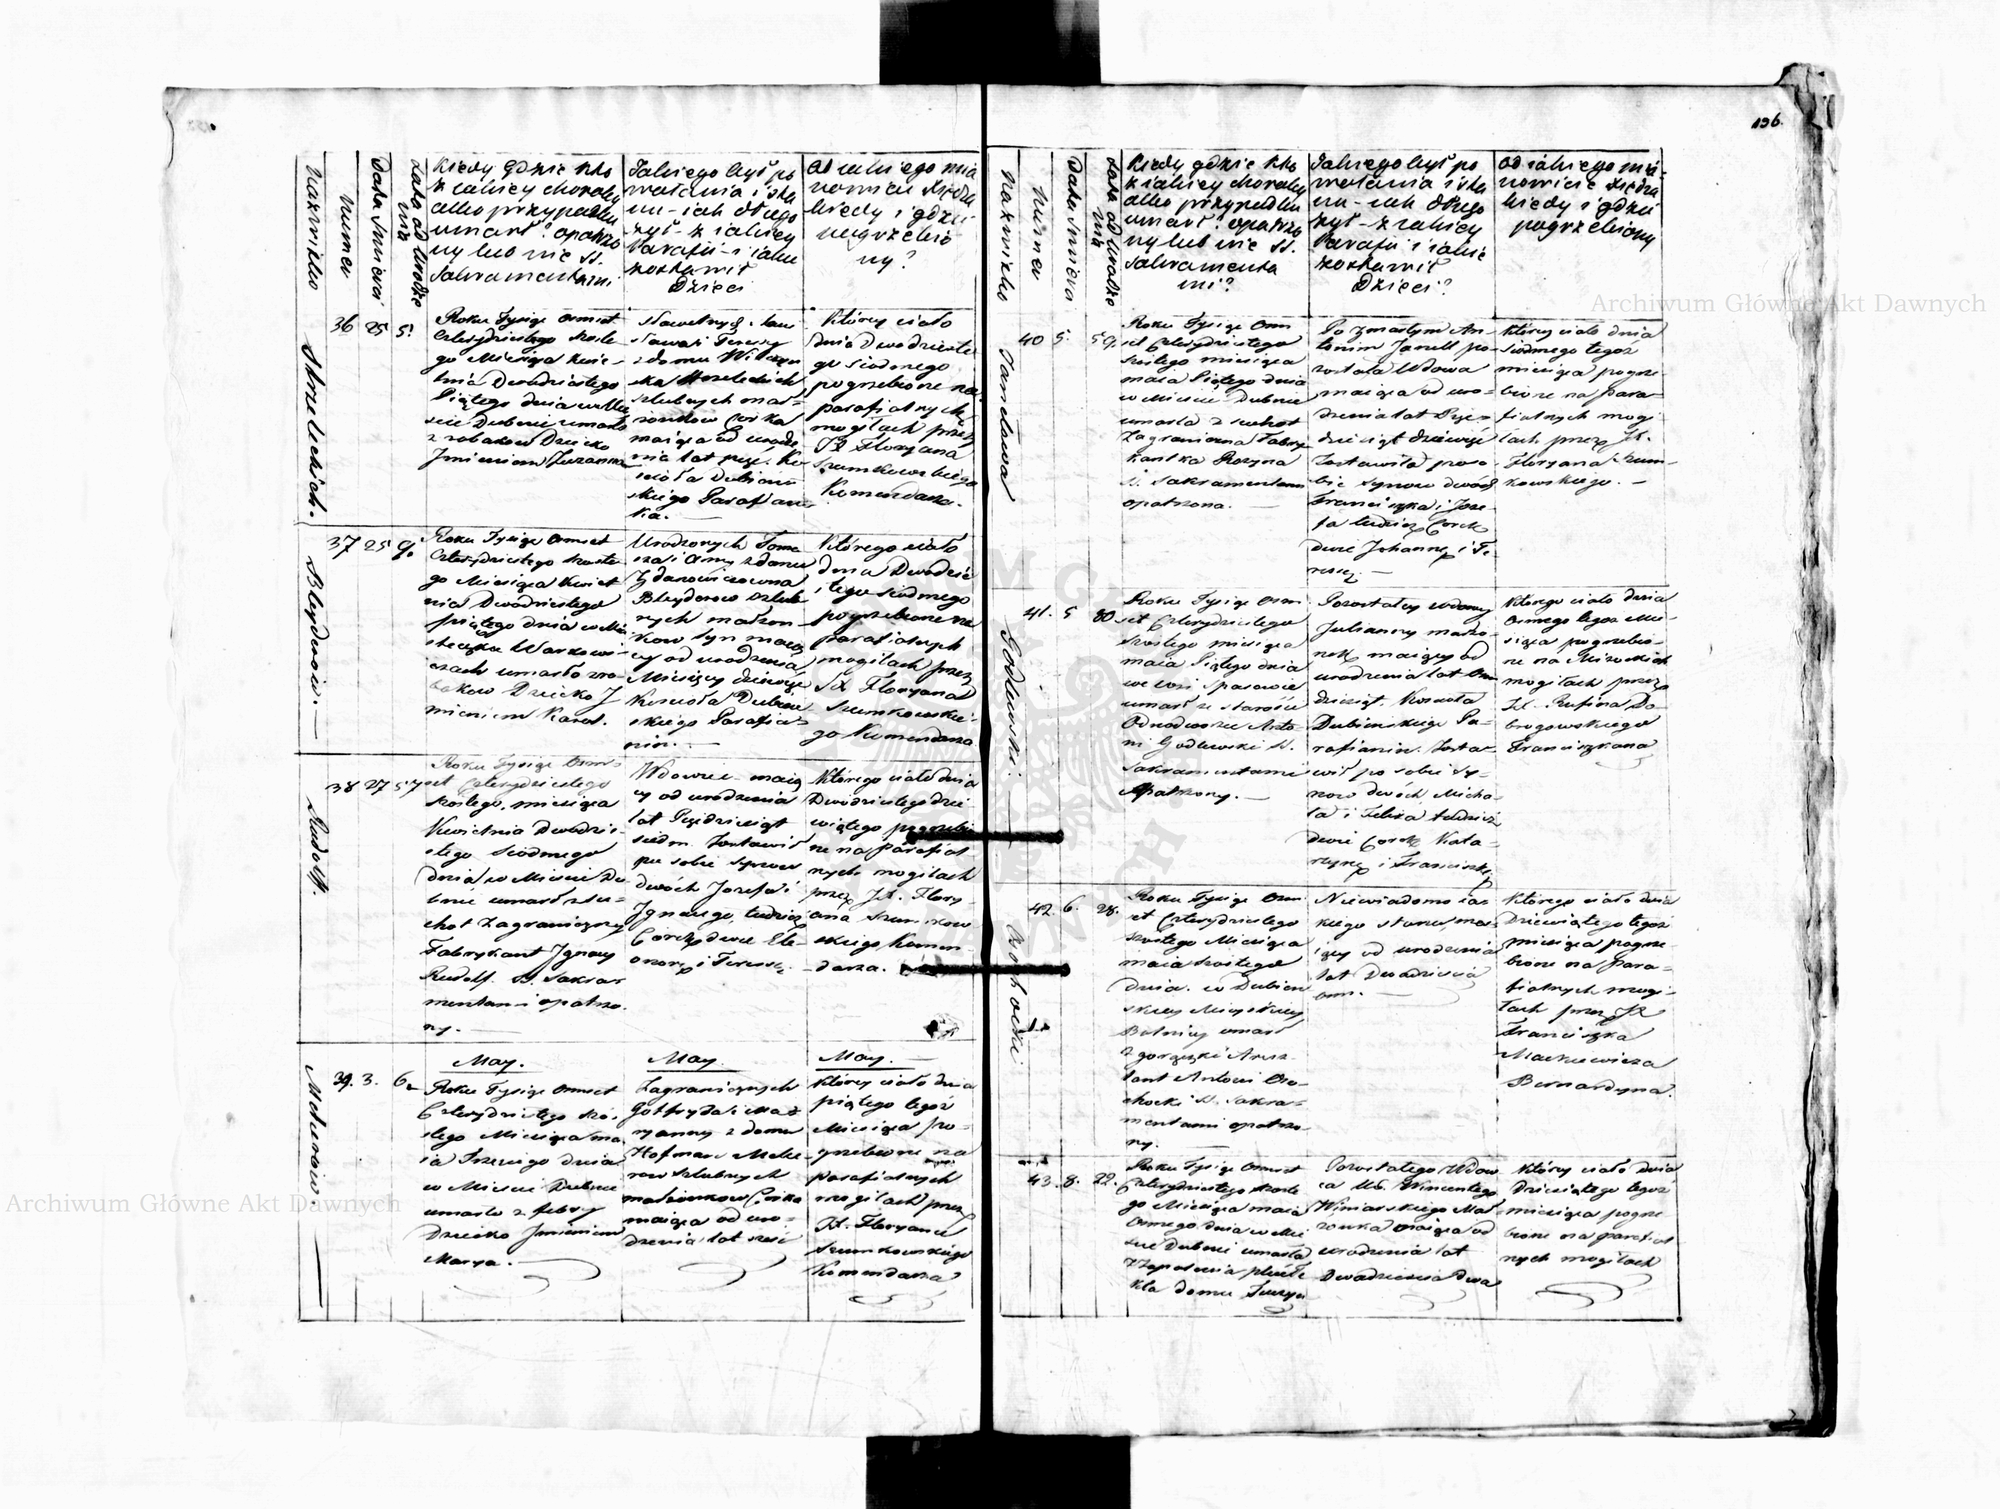 136.
Nazwisko
Numer
Data Smierci
Lata od Urodze
nia
Kiedy gdzie kto
z iakiey choroby
albo przypadku
umarł? opatrzo
ny lub nie SS.
Sakramentami
Jakiego był po
wołania i sta
nu – iak długo
żył – z iakiey
Parafii – i iakie
zostawił
Dzieci
Od iakiego mia
nowicie Xiędza
kiedy i gdzie
pogrzebio
ny?
Strzeleckich.
36
25
5.
Roku Tysiąc Ośmset
Czterdziestego Szóste
go Miesiąca Kwie
tnia Dwudziestego
Piątego dnia w Mie
ście Dubnie umarło
z robaków Dziecko
Imieniem Zuzanna
Sławetnych Sta
nisława i Teresy
z domu
Strzeleckich
szlubnych mał-
żonków Córka
maiąca od urodze
nia lat pięć. Ko
ścioła Dubień
skiego Parafian
ka. —
Którey ciało
dnia Dwudzieste
go siódmego
pogrzebione na
parafialnych
mogiłach przez
JX Floryana
Szumkowskiego
Komendarza.
Bleydorow. —
37
25
9.
Roku Tysiąc Ośmset
Czterdziestego Szóste
go Miesiąca Kwiet
nia Dwudziestego
piątego dnia w Mia
steczku Warkowi
czach umarło z ro
baków Dziecko I
mieniem Karol.
Urodzonych Toma
sza i Anny z domu
Bleydorow szlub
nych małżon
ków Syn maią
cy od urodzenia
Miesięcy dziewięć
Kościoła Dubień
skiego Parafia
nin. —
Którego ciało
dnia Dwudzies
tego siódmego
pogrzebione na
parafialnych
mogiłach przez
JX Floryana
Szumkowskie-
go Komendarza
Rudolf.
38
27
57
Roku Tysiąc Ośm-
set Czterdziestego
szóstego, miesiąca
Kwietnia Dwudzie-
stego Siódmego
dnia w Mieście Du
bnie umarł z su-
chot Zagraniczny
Fabrykant Ignacy
Rudolf. SS. Sakra
mentami opatrzo.
ny. —
Wdowiec maią
cy od urodzenia
lat Pięćdziesiąt
siedm. Zostawił
po sobie Synów
dwóch Józefa i
Ignacego, tudzież
Córek dwie Ele-
onorę i Teresę.
Którego ciało dnia
Dwudziestego dzie
wiątego pogrzebio
ne na parafial
nych mogiłach
przez JX. Flory-
ana Szumkow
skiego Komen-
darza.
Meherow
39.
3.
6
May.
Roku Tysiąc Ośmset
Czterdziestego Szó.
stego Miesiąca Ma
ia Trzeciego dnia
w Mieście Dubnie
umarło z febry
Dziecko Imieniem
Marya.
May.
Zagranicznych
Gotfryda i Ma
ryanny z domu
Hofman Mehe
row szlubnych
małżonków Córka
maiąca od uro-
dzenia lat sześć
May.
Którey ciało dnia
piątego tegoż
Miesiąca po-
grzebione na
parafialnych
mogiłach przez
JX. Floryana
Szumkowskiego
Komendarza
Nazwisko
Numer
Data Smierci
Lata od Urodze
nia
Kiedy gdzie kto
z iakiey choroby
albo przypadku
umarł? opatrzo
ny lub nie SS.
Sakramenta
mi?
Jakiego był po
wołania i sta
nu – iak długo
żył – z iakiey
Parafii i iakie
zostawił
Dzieci?
Od iakiego mia-
nowicie Xiędza
kiedy i gdzie
pogrzebiony
Janelowa
40
5.
59.
Roku Tysiąc Ośm
set Czterdziestego
szóstego miesiąca
maia Piątego dnia
w Mieście Dubnie
umarła z suchot
Zagraniczna Fabry
kantka Rozyna
SS. Sakramentami
opatrzona. —
Po zmarłym An-
tonim Janell po-
została Wdowa
maiąca od uro-
dzenia lat Pięć-
dziesiąt dziewięć
Zostawiła po so-
bie Synów dwóch
Franciszka i Józe-
fa tudzież Córek
dwie Johannę i Te
resę. —
Którey ciało dnia
siódmego tegoż
miesiąca pogrze-
bione na para-
fialnych mogi
łach przez JX.
Floryana Szum-
kowskiego. —
Godlewski.
41.
5
80
Roku Tysiąc Ośm
set Czterdziestego
szóstego miesiąca
maia Piątego dnia
we wsi Spasowie
umarł ze starości
Odnodworzec Anto-
ni Godlewski SS.
Sakramentami
Opatrzony. —
Pozostałey wdowy
Julianny małżo-
nek maiący od
urodzenia lat Ośm
dziesiąt. Kościoła
Dubieńskiego Pa-
rafianin. Zosta-
wił po sobie Sy-
nów dwóch Micha-
ła i Felixa tudzież
dwie Córek Kata-
rzynę i Franciszkę
Którego ciało dnia
Ósmego tegoż Mie-
siąca pogrzebio-
ne na
mogiłach przez
JX. Rufina Do-
browolskiego
Franciszkana
42.
6.
28.
Roku Tysiąc Ośm
set Czterdziestego
szóstego Miesiąca
maia szóstego
dnia. w Dubień
skiey Mieyskiey
Bolnicy umarł
z gorączki Aresz-
tant Antoni
SS. Sakra-
mentami opatrzo-
ny. —
Niewiadomo ia-
kiego stanu, ma-
iący od urodzenia
lat Dwadzieścia
ośm. —
Którego ciało dnia
Dziewiątego tegoż
miesiąca pogrze-
bione na para-
fialnych mogi-
łach przez JX
Franciszka
Mackiewicza
Bernardyna.
43.
8.
22.
Roku Tysiąc Ośmset
Czterdziestego szóste
go Miesiąca maia
Ósmego dnia w Mie
ście Dubnie umarła
z zapalenia płuc
kla domu
Pozostałego Wdow
ca Ur. Wincentego
Winiarskiego Mał-
żonka maiąca od
urodzenia lat
Dwadzieścia dwa
Którey ciało dnia
Dziesiątego tegoż
miesiąca pogrze
bione na parafial
nych mogiłach
Archiwum Główne Akt Dawnych
Archiwum Główne Akt Dawnych